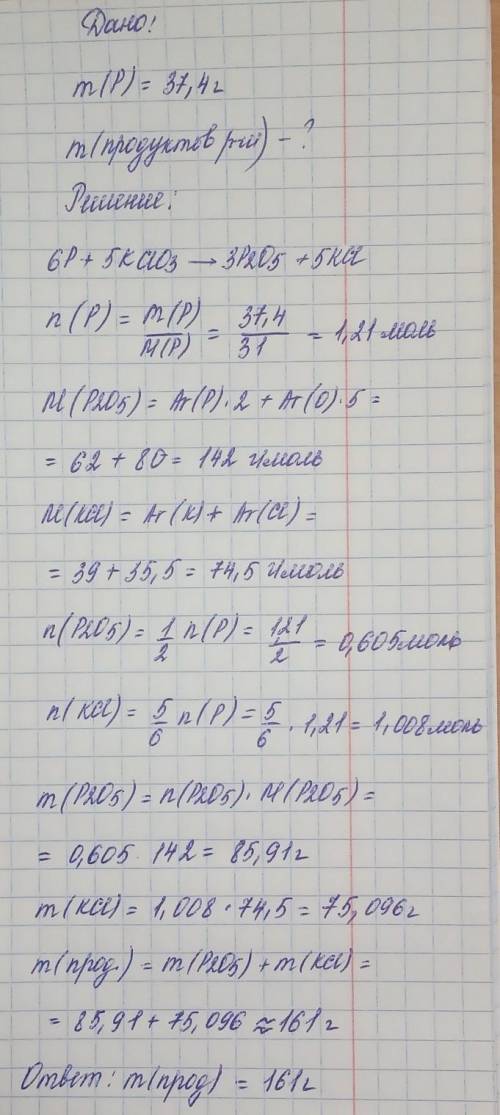 Дано:
m(P) = 37,4г
m(продуктов р-ии) - ?
Решение:
6P + 5KClO3 → 3P2O5 + 5KCl
n(P) = m(P)/M(P) = 37,4/31 = 1,21 моль
M(P2O5) = Ar(P)·2 + Ar(O)·5 =
= 62 + 80 = 142 г/моль
M(KCl) = Ar(K) + Ar(Cl) =
= 39 + 35,5 = 74,5 г/моль
n(P2O5) = 1/2 n(P) = 1,21/2 = 0,605 моль
n(KCl) = 5/6 n(P) = 5/6 · 1,21 = 1,008 моль
m(P2O5) = n(P2O5) · M(P2O5) =
= 0,605 · 142 = 85,91г
m(KCl) = 1,008 · 74,5 = 75,096г
m(прод.) = m(P2O5) + m(KCl) =
= 85,91 + 75,096 ≈ 161г
Ответ: m(прод) = 161г